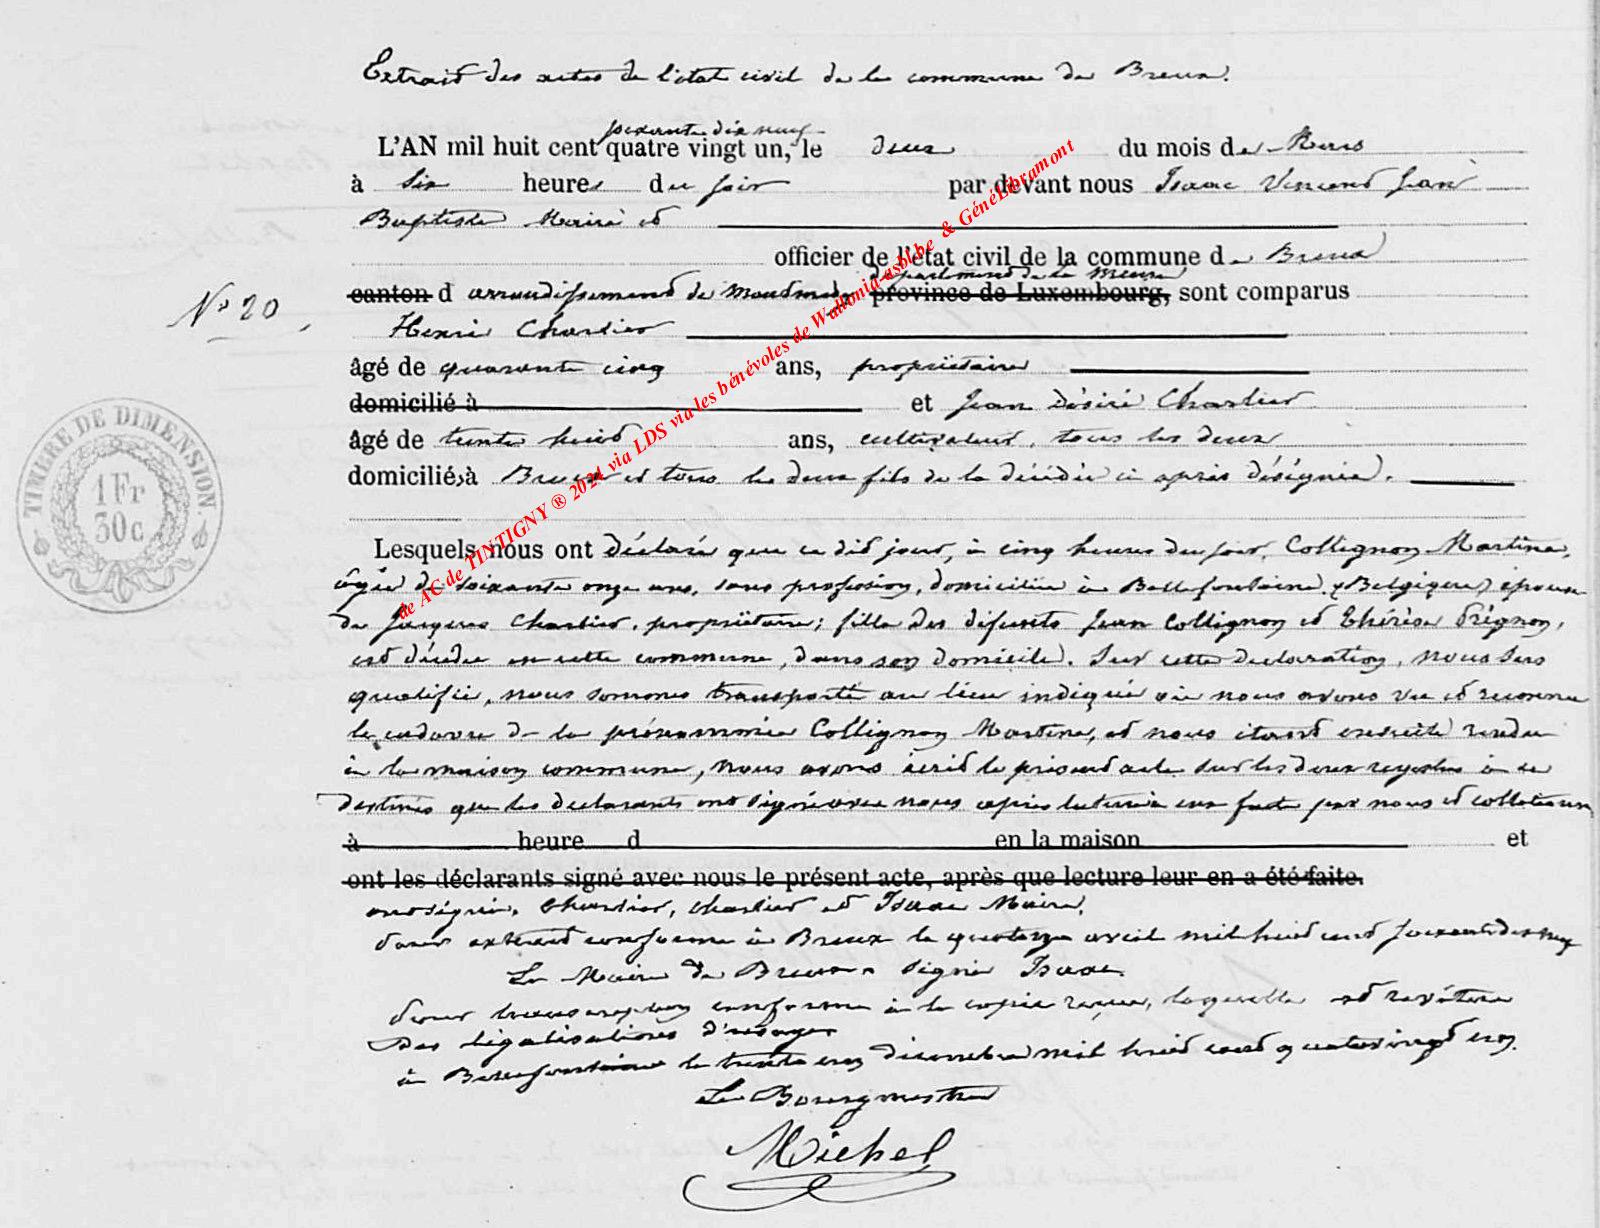 Extrait des actes de l'état civil de la commune de Breux.
soixante dix neuf
L'AN mil huit cent quatre vingt un, le deux du mois de Mars
à Six heures du soir par devant nous Isaac Vincent Jean
Baptiste Maire et
officier de l'état civil de la commune de Breux
département de la Meuse
canton d arrondissement de Montmédy province de Luxembourg, sont comparus
N° 20
Henri Charlier
âgé de quarante cinq ans, propriétaire
domicilié à et Jean Désiré Charlier
âgé de trente huit ans, cultivateur, tous les deux
domiciliés à Breux et tous les deux fils de la décédée ci après désignée.
TIMBRE DE DIMENSION
1 Fr
30c
Lesquels nous ont déclaré que ce dit jour, à cinq heures du soir, Collignon Martine,
âgée de soixante onze ans, sans profession, domiciliée à Bellefontaine (Belgique) épouse
de Jacques Charlier, propriétaire; fille des défunts Jean Collignon et Thérèse Prégnon,
est décédée en cette commune, dans son domicile. Sur cette déclaration, nous
qualifié, nous sommes transporté au lieu indiqué où nous avons vu et reconnu
le cadavre de la prénommée Collignon Martine, et nous étant ensuite rendu
à la maison commune, nous avons écrit le présent acte sur les deux registres à ce
destinés que les déclarants ont signé avec nous après lecture faite par nous et collation
à heure d en la maison et
ont les déclarants signé avec nous le présent acte, après que lecture leur en a été faite.
ont signé, Charlier, Charlier et Isaac Maire.
Pour extrait conforme à Breux le quatorze avril mil huit cent soixante dix neuf
Le Maire de Breux signé Isaac
Pour transcription conforme à la copie reçue, laquelle est revêtue
des légalisations d'usage
à Bellefontaine le trente un décembre mil huit cent quatre vingt un.
Le Bourgmestre
Michel
de AC de TINTIGNY ® 2021 via LDS via les bénévoles de Wallonia-asbl.be & GénéLibramont